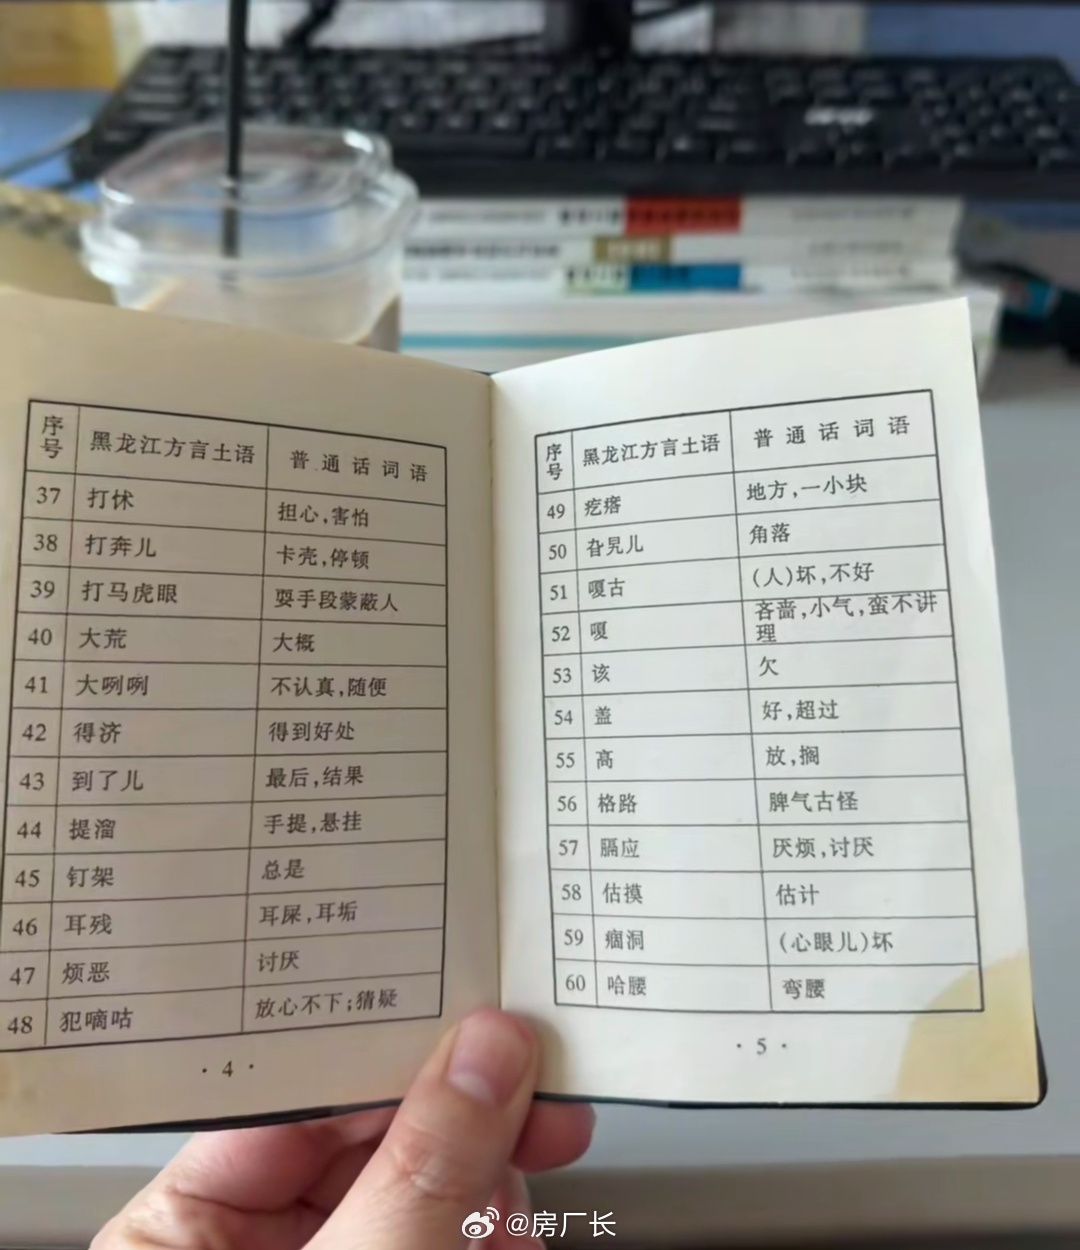 序号 黑龙江方言土语 普通话词语
37 打怵 担心,害怕
38 打奔儿 卡壳,停顿
39 打马虎眼 耍手段蒙蔽人
40 大荒 大概
41 大咧咧 不认真,随便
42 得济 得到好处
43 到了儿 最后,结果
44 提溜 手提,悬挂
45 钉架 总是
46 耳残 耳屎,耳垢
47 烦恶 讨厌
48 犯嘀咕 放心不下;猜疑
·4·
序号 黑龙江方言土语 普通话词语
49 疙瘩 地方,一小块
50 旮旯儿 角落
51 嘎古 (人)坏,不好
52 嘎 吝啬,小气,蛮不讲
理
53 该 欠
54 盖 好,超过
55 高 放,搁
56 格路 脾气古怪
57 膈应 厌烦,讨厌
58 估摸 估计
59 痼洞 (心眼儿)坏
60 哈腰 弯腰
·5·
@房厂长